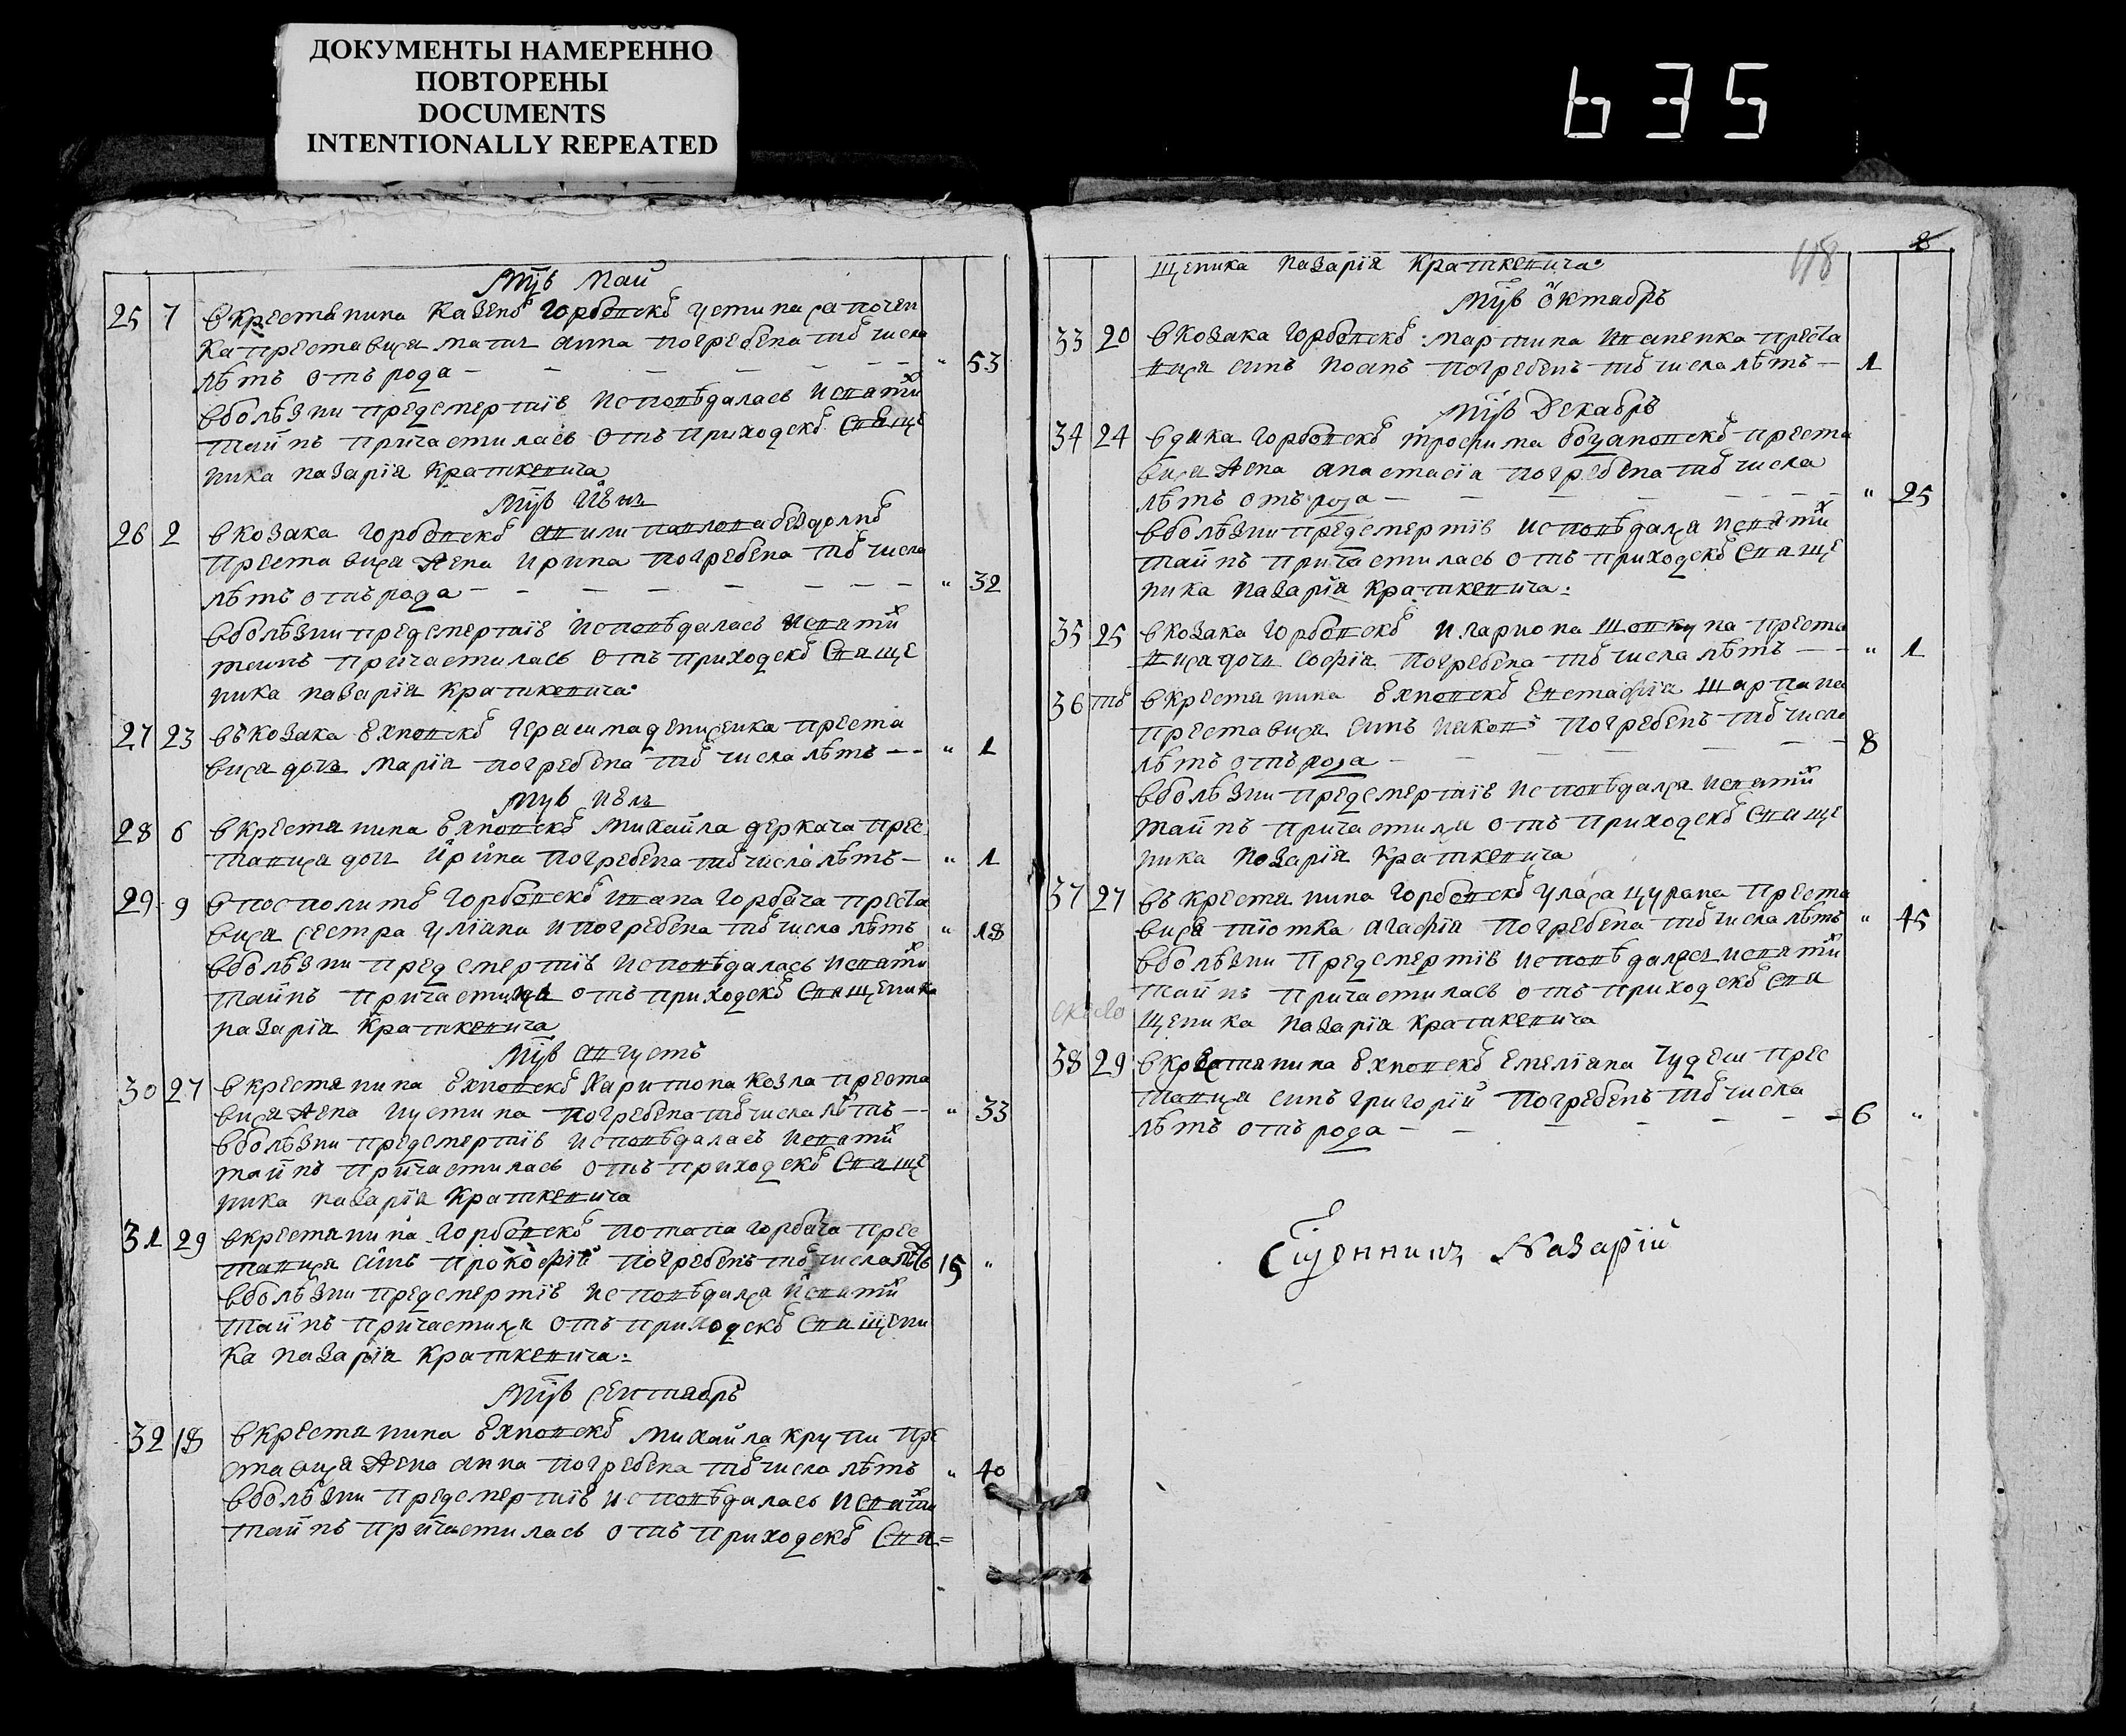 ДОКУМЕНТЫ НАМЕРЕННО
ПОВТОРЕНЫ
DOCUMENTS
INTENTIONALLY REPEATED
635
Мцъ Май
25 7 в крестянина казенъ горбовскъ устина сапочен
ка преставися мати анна погребена тоъ числа
лѣтъ отъ рода - - - - - " 53
в болѣзни предсмертнѣ исповѣдалась и святых
тайнъ причастилась отъ приходскъ свяще
ника назарія краткевича
Мцъ Июнь
26 2 в козака горбовскъ павлова бездолнъ
преставися жена ирина погребена тоъ числа
лѣтъ отъ рода - - - - - " 32
в болѣзни предсмертнѣ исповѣдалась и святых
таинъ причастилась отъ приходскъ свяще
ника назарія краткевича
27 23 въ козака ехновскъ герасима денисенка преста
вися дочь марія погребена тоъ числа лѣтъ - - " 1
Мцъ июль
28 6 в крестянина ехновскъ михайла деркача прес
тавися дочь ирина погребена тоъ числа лѣтъ - " 1
29 9 в посполитъ горбовскъ ивана горбача преста
вися сестра уліана и погребена тоъ числа лѣтъ " 18
в болѣзни предсмертнѣ исповѣдалась и святых
тайнъ причастися отъ приходскъ священика
назарія краткевича
Мцъ августъ
30 27 в крестянина ехновскъ харитона козла преста
вися жена иустина погребена тоъ числа лѣтъ - - " 33
в болѣзни предсмертнѣ исповѣдалась и святых
тайнъ причастилась отъ приходскъ свяще
ника назарія краткевича
31 29 в крестянина горбовскъ потапа горбача прес
тавися синъ прокофій погребенъ тоъ числа лѣтъ 15 "
в болѣзни предсмертнѣ исповѣдался и святых
тайнъ причастися отъ приходскъ священи
ка назарія краткевича:
Мцъ сентябръ
32 18 в крестянина ехновскъ михайла крупи пре
ставися жена анна погребена тоъ числа лѣтъ " 40
в болѣзни предсмертнѣ исповѣдалась и святых
тайнъ причастилась отъ приходскъ свя=
8
118
щеника назарія краткевича:
Мцъ октябръ
33 20 в козака горбовскъ: мартина иваненка преста
вися синъ иоанъ погребенъ тоъ числа лѣтъ - 1
Мцъ Декабръ
34 24 в дяка горбовскъ трофима преста
вися жена анастасіа погребена тоъ числа
лѣтъ отъ рода - - - - - " 25
в болѣзни предсмертнѣ исповѣдалася и святых
тайнъ причастилась отъ приходскъ свяще
ника назарія краткевича:
35 25 в козака горбовскъ илариона преста
вися дочь софіа погребена тоъ числа лѣтъ - - " 1
36 тоъ в крестянина ехновскъ евстафіа
преставися синъ иаковъ погребенъ тоъ числа
лѣтъ отъ рода - - - - - 8
в болѣзни предсмертнѣ исповѣдался и святых
тайнъ причастися отъ приходскъ свяще
ника назарія краткевича
37 27 въ крестянина горбовскъ уласа цурана преста
вися тіотка агафіа погребена тоъ числа лѣтъ " 45
в болѣзни предсмертнѣ исповѣдалась и святых
тайнъ причастилась отъ приходскъ свя
щеника назарія краткевича
38 29 в крестянина ехновскъ емеліана прес
тавися синъ григорій погребенъ тоъ числа
лѣтъ отъ рода - - - - - 6 "
Сщенникъ Назарій